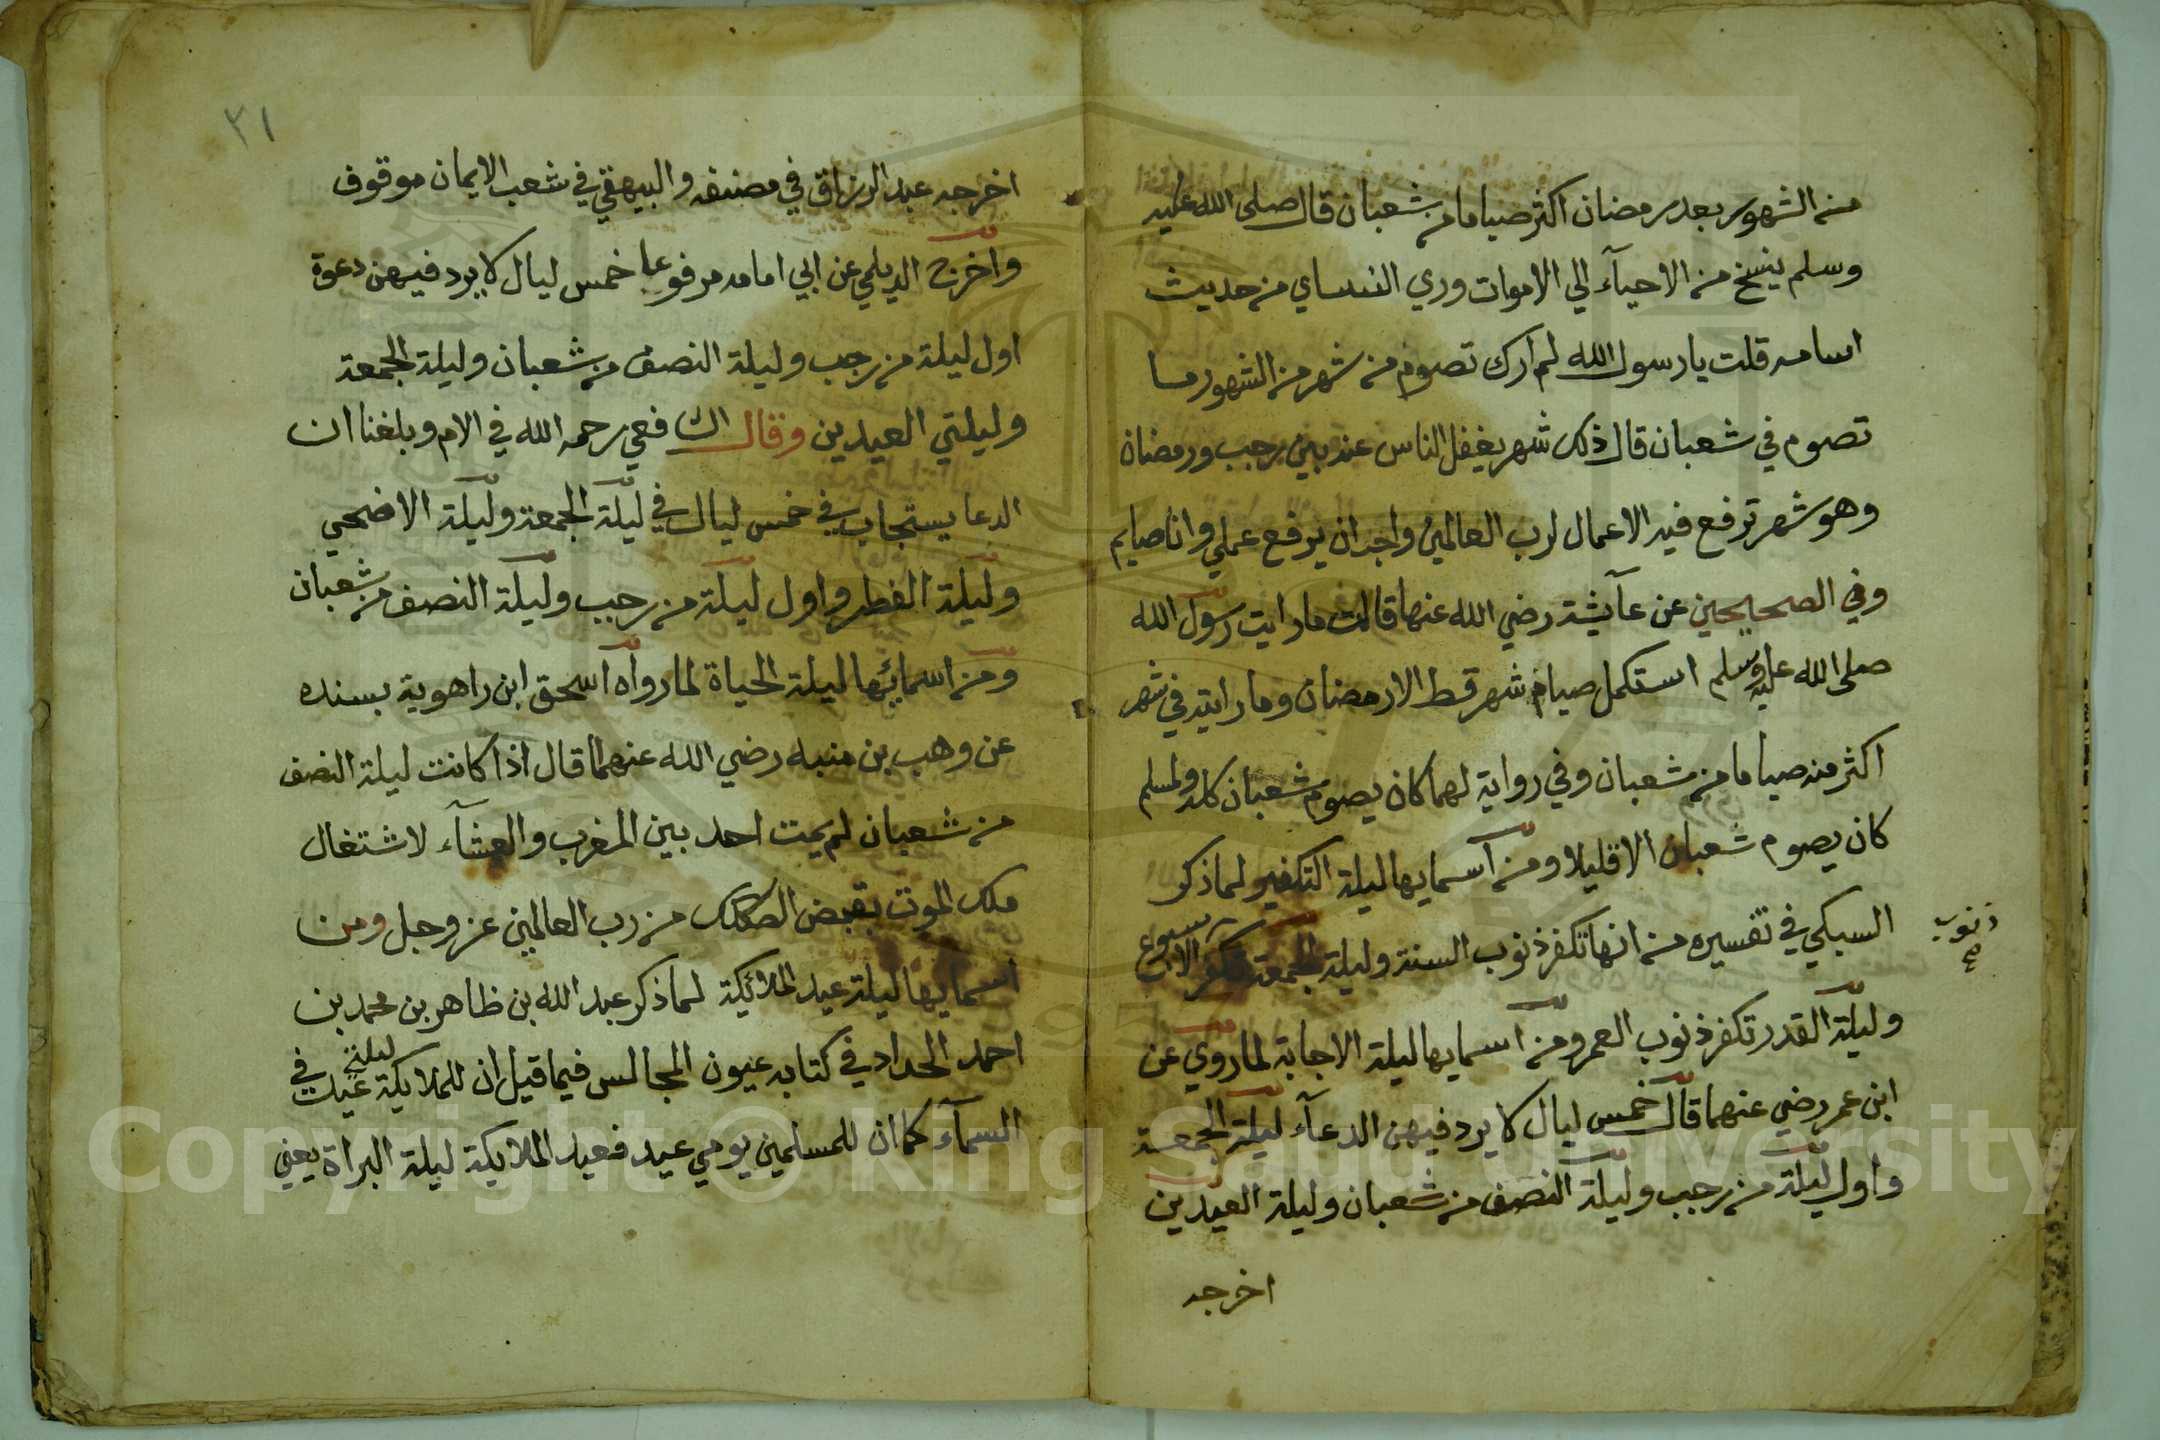 منه الشهور بعد رمضان اكثر صياما من شعبان قال صلى الله عليه
وسلم ينسخ من الاحيآء الي الاموات وري النساي من حديث
اسامه قلت يا رسول الله لم ارك تصوم من شهر من الشهور ما
تصوم في شعبان قال ذلك شهر يغفل الناس عنه بين رجب ورمضان
وهو شهر ترفع فيه الاعمال لرب العالمين واحب ان يرفع عملي وانا صايم
وفي الصحيحين عن عآيشة رضي الله عنها قالت ما رايت رسول الله
صلى الله عليه وسلم استكمل صيام شهر قط الا رمضان وما رايته في شهر
اكثر منه صياما من شعبان وفي رواية لهما كان يصوم شعبان كله ولمسلم
كان يصوم شعبان الا قليلا ومن آسمايها ليلة التكفير لما ذكر
السبكي في تفسيره من انها تكفر ذنوب السنة وليلة الجمعة تكفر الاسبوع
ذنوب
صح
وليلة القدر تكفر ذنوب العمر ومن آسمايها ليلة الاجابة لما روي عن
ابن عمر رضي عنهما قال خمس ليال لا يرد فيهن الدعآء ليلة الجمعة
واول ليلة من رجب وليلة النصف من شعبان وليلة العيدين
اخرجه
٢١
اخرجه عبد الرزاق في مصنفه والبيهقي في شعب الايمان موقوف
واخرج الديلمي عن ابي امامه مرفوعا خمس ليال لا يرد فيهن دعوة
اول ليلة من رجب وليلة النصف من شعبان وليلة الجمعة
وليلتي العيدين وقال الشافعي رحمه الله في الام وبلغنا ان
الدعا يستجاب في خمس ليال في ليلة الجمعة وليلة الاضحي
وليلة الفطر واول ليلة من رجب وليلة النصف من شعبان
ومن اسمائها ليلة الحياة لما رواه اسحق ابن راهوية بسنده
عن وهب بن منبه رضي الله عنهما قال اذا كانت ليلة النصف
من شعبان لم يمت احد بين المغرب والعشآء لاشتغال
ملك الموت بقبض الصكك من رب العالمين عز وجل ومن
اسمايها ليلة عيد الملائكة لما ذكر عبد الله بن ظاهر بن محمد بن
احمد الحداد في كتابه عيون المجالس فيما قيل ان للملايكة ليلتي عيد في
السمآء كما ان للمسلمين يومي عيد فعيد الملايكة ليلة البراة يعني
Copyright © King Saud University